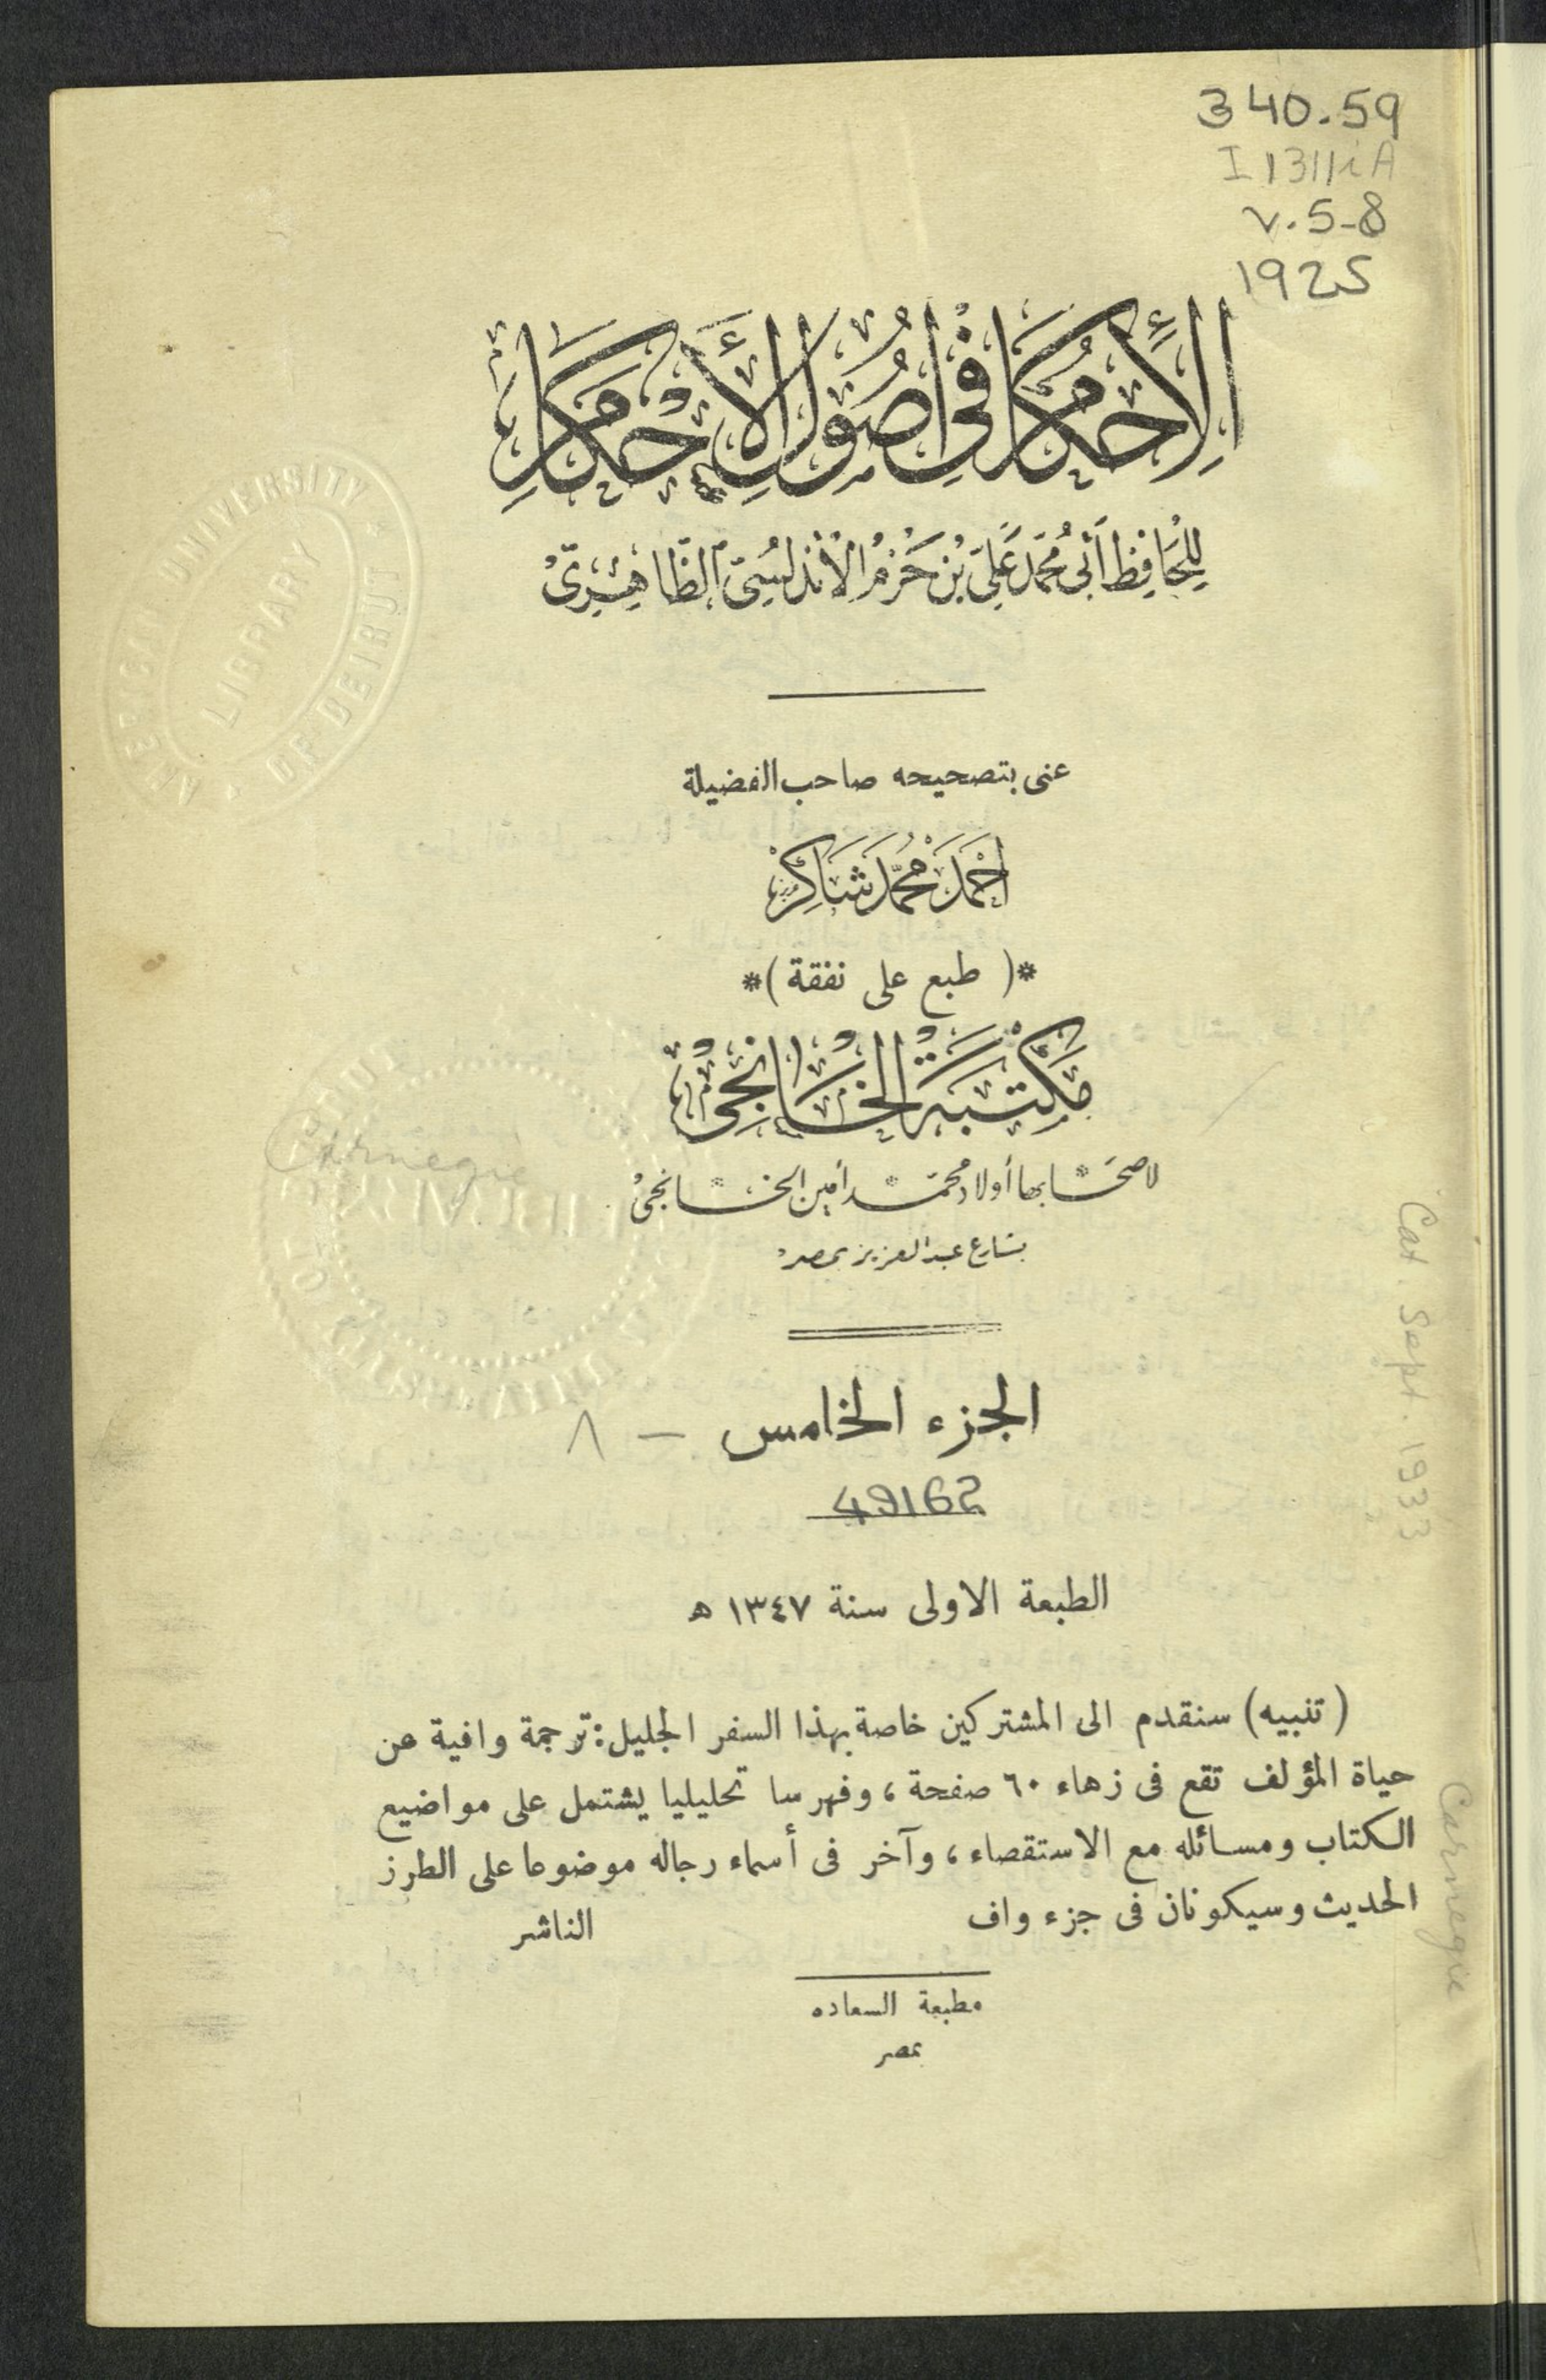 340.59
I1311iA
v.5-8
1925
الإحكام في أصول الأحكام
للحافظ أبي محمد علي بن حزم الأندلسي الظاهري
AMERICAN UNIVERSITY OF BEIRUT
LIBRARY
عنى بتصحيحه صاحب الفضيلة
أحمد محمد شاكر
*( طبع على نفقة )*
مكتبة الخانجي
لاصحابها أولاد محمد أمين الخانجي
بشارع عبد العزيز بمصر
Carnegie
الجزء الخامس - ٨
49162
الطبعة الاولى سنة ١٣٤٧ ه
(تنبيه) سنقدم الى المشتركين خاصة بهذا السفر الجليل: ترجمة وافية عن
حياة المؤلف تقع فى زهاء ٦٠ صفحة ، وفهرسا تحليليا يشتمل على مواضيع
الكتاب ومسائله مع الاستقصاء ، وآخر فى أسماء رجاله موضوعا على الطرز
الحديث وسيكونان فى جزء واف الناشر
مطبعة السعاده
بمصر
Cat. Sept. 1933
Carnegie